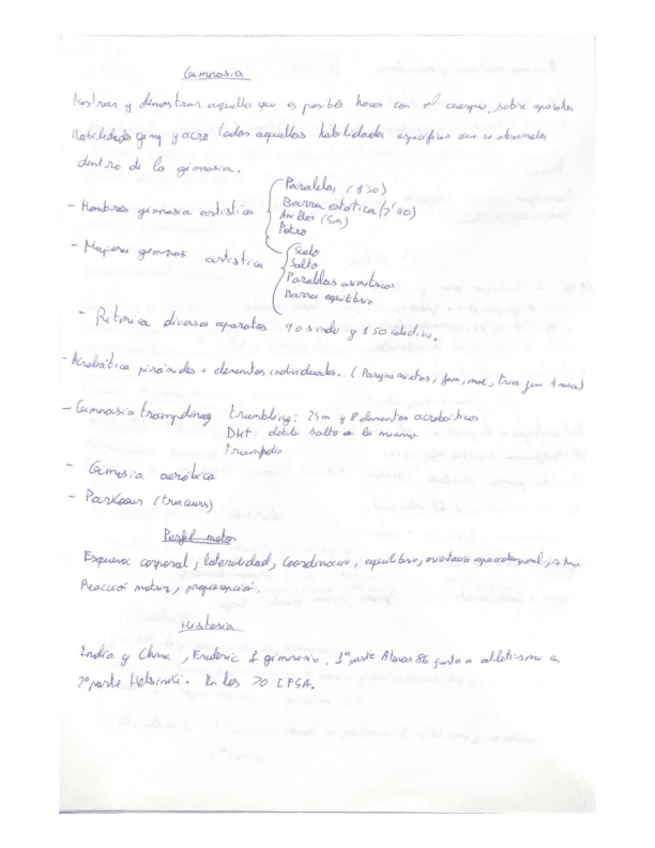 Gimnasia
Mostrar y demostrar aquello que es posible hacer con el cuerpo, sobre aparatos
Habilidades gimn y acro todas aquellas habilidades especificas que se observan
dentro de la gimnasia.
- Hombres gimnasia artistica
Paralelas (1'50)
Barra estatica (2'40)
Anillos (5m)
Potro
- Mujeres gimnas artistica
Suelo
Salto
Paralelas asimetricas
Barra equilibrio
- Ritmica diversos aparatos 90 s indv y 150 colectivo.
- Acrobática pirámides + elementos individuales. (Parejas mixtas, fem, masc, trios fem 4 masc)
- Gimnasia trampoling trumbling: 25m y 8 elementos acrobáticos.
DMT: doble salto a la
trampolin
- Gimnasia aeróbica
- Parkour (traceurs)
Perfil motor
Esquema corporal, lateralidad, coordinacion, equilibrio, espaciotemporal,
Reacció motriz, propiocepció.
Historia
India y China, Frederic 1 gimnasio. 1ª parte 86 junto a atletismo en
2ª parte Helsinki. En los 70